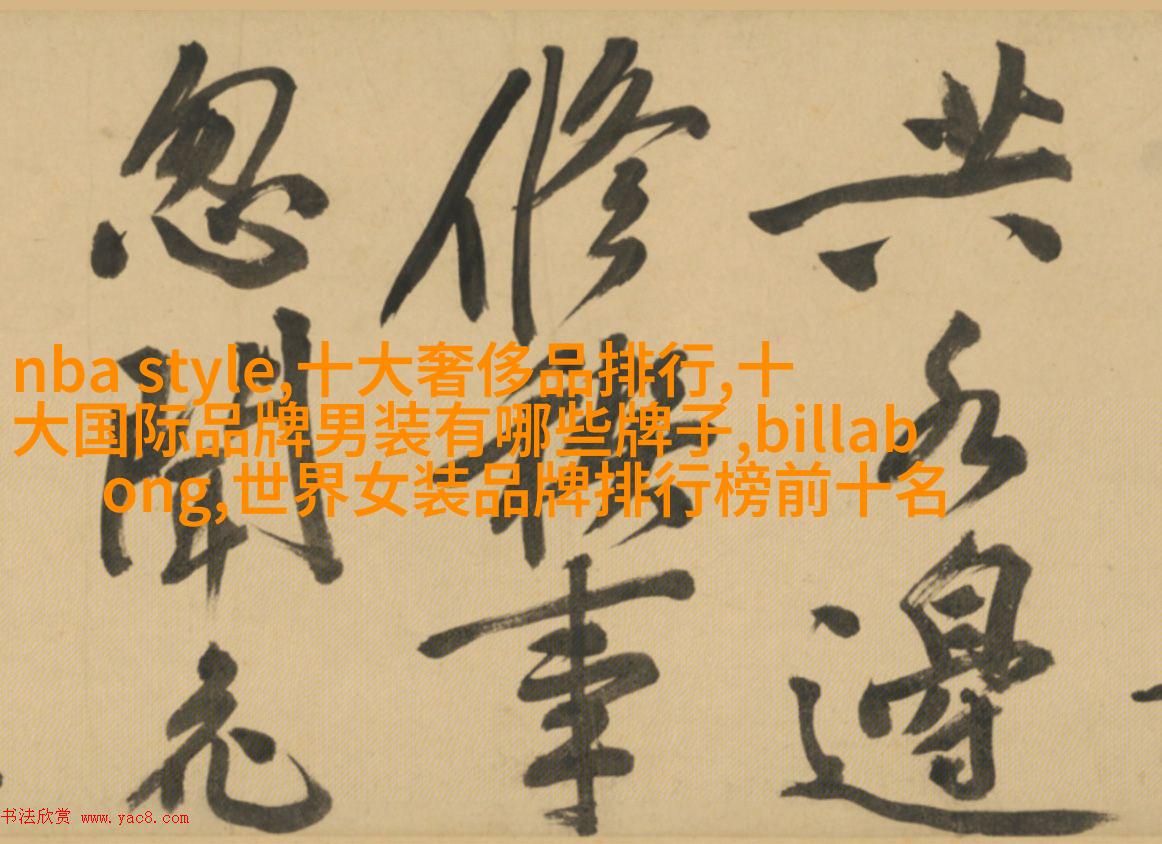 共水邊
修禊事
忽聞
nba style,十大奢侈品排行,十
大国际品牌男装有哪些牌子,billab
ong,世界女装品牌排行榜前十名
书法欣赏 www.yac8.com